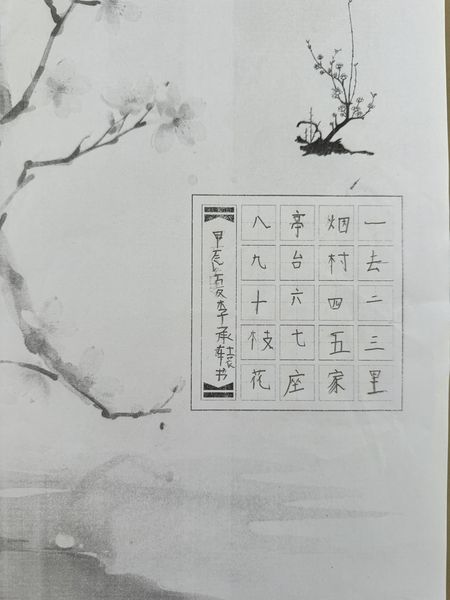 一去二三里
烟村四五家
亭台六七座
八九十枝花
甲辰夏李承轅书